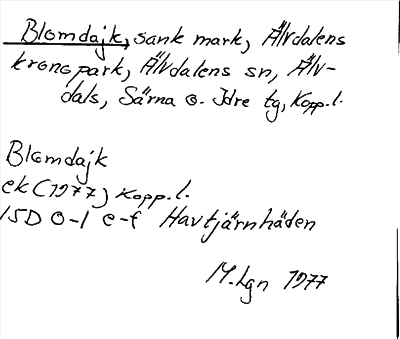 Blomdajk, sank mark, Älvdalens
kronopark, Älvdalens sn, Älv-
dals, Särna o. Idre tg, Kopp.l.
Blomdajk
ek (1977) Kopp.l.
15D 0-1 e-f Havtjärnhäden
M.Lgn 1977